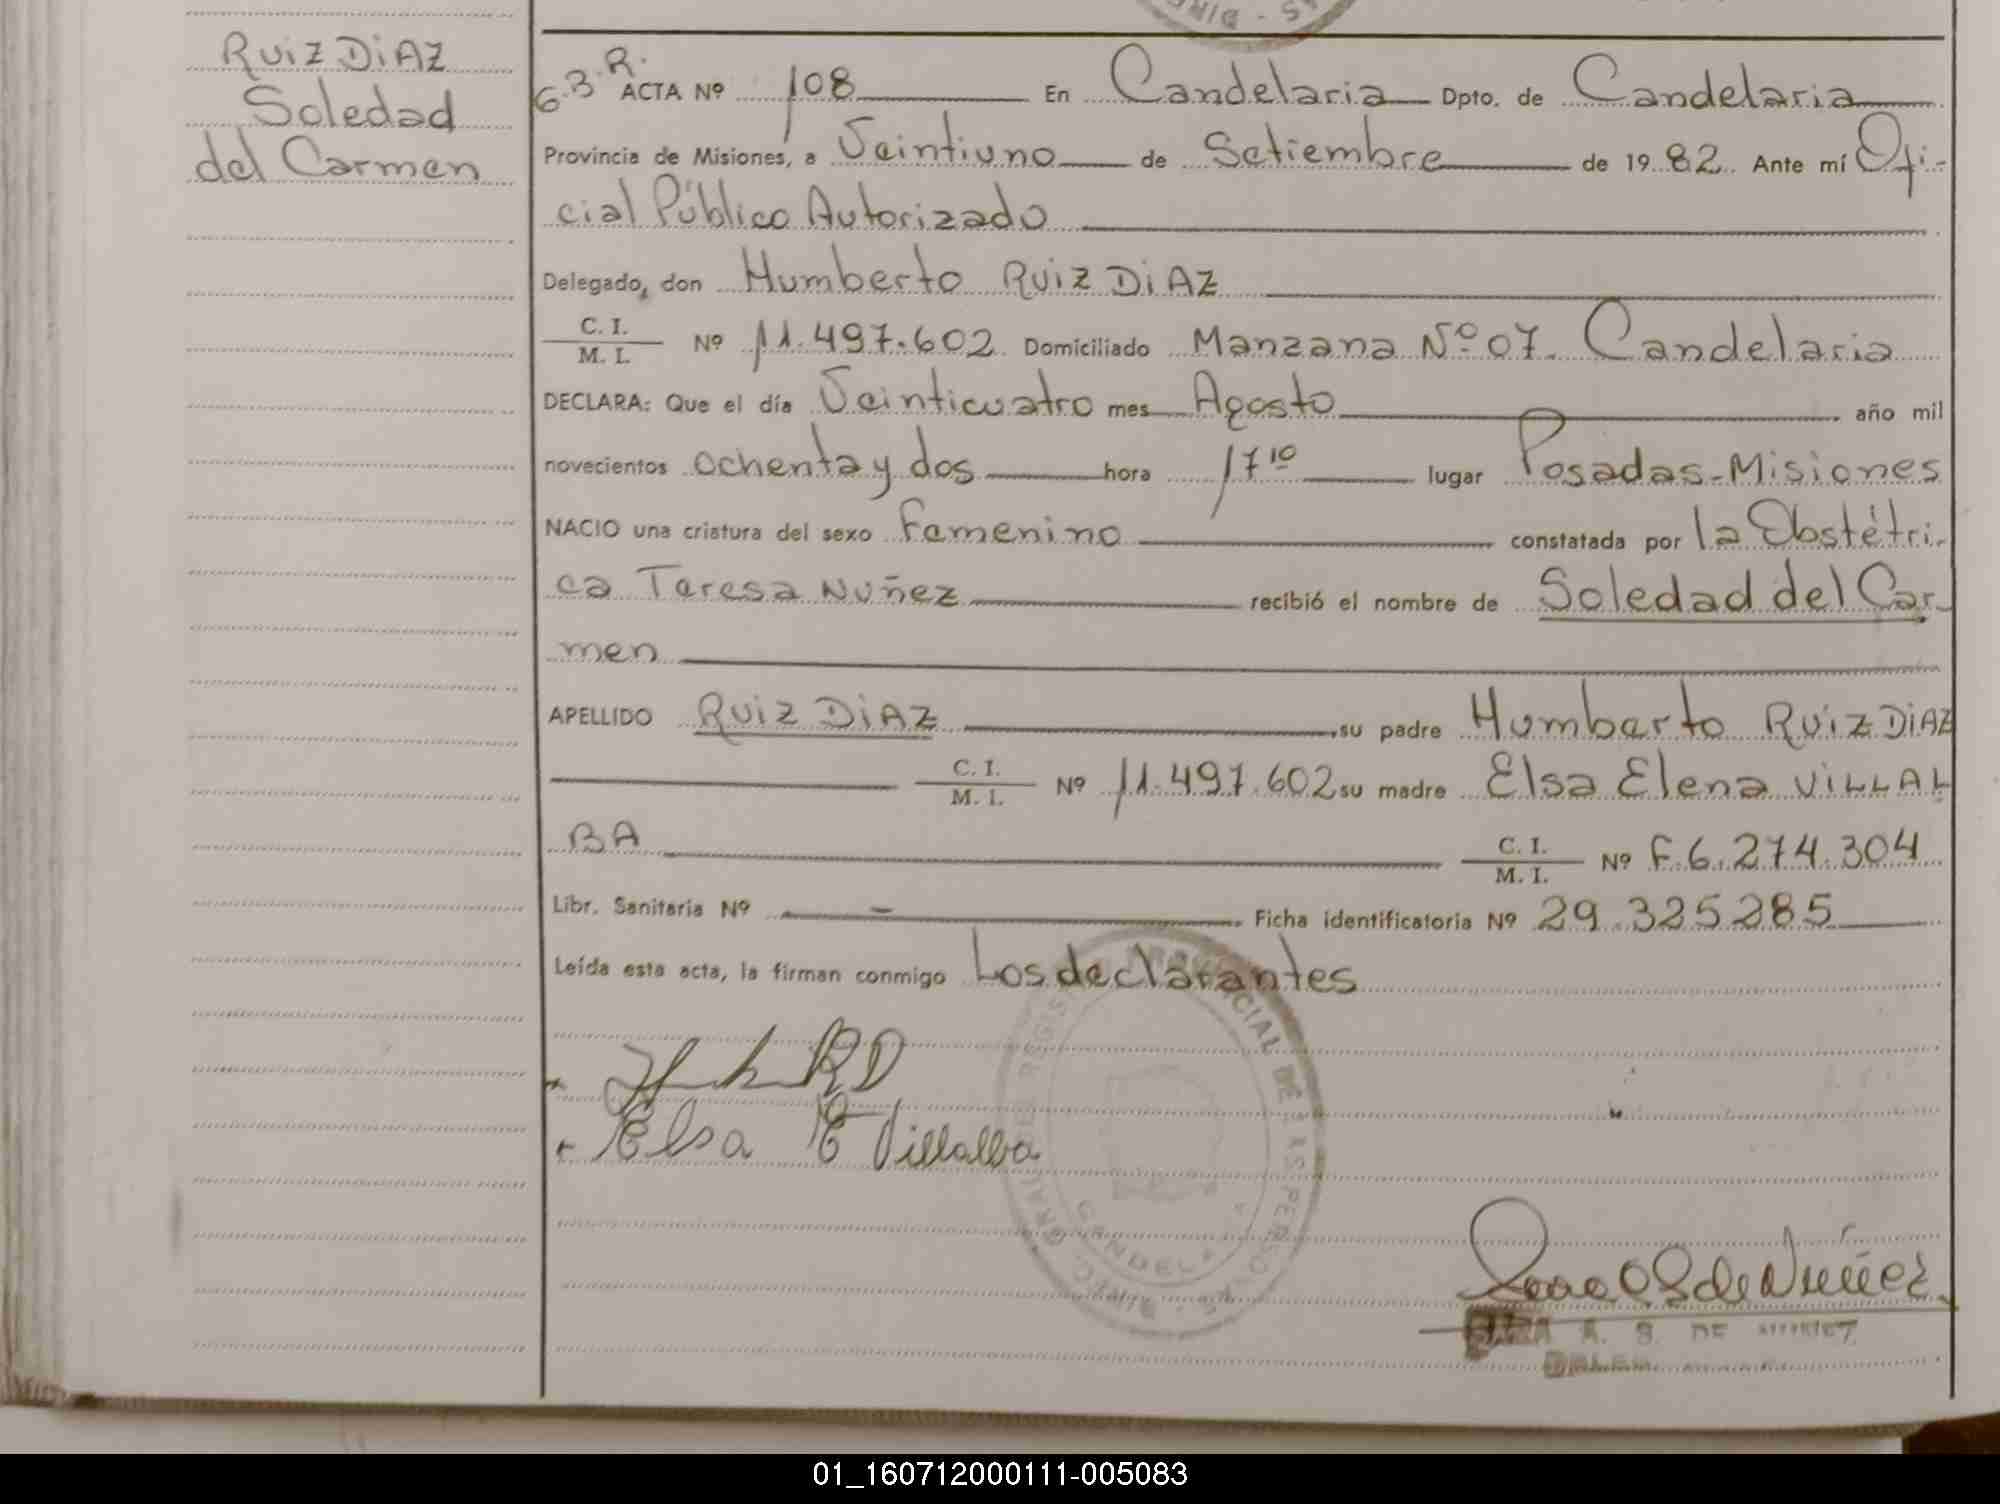 RUIZ DIAZ
Soledad
del Carmen
G.B.R. ACTA Nº 108 En Candelaria Dpto. de Candelaria
Provincia de Misiones, a Veintiuno de Setiembre de 1982. Ante mí Ofi-
cial Público Autorizado
Delegado, don Humberto RUIZ DIAZ
C. I.
M. I. Nº 11.497.602 Domiciliado Manzana Nº 07. Candelaria
DECLARA: Que el día Veinticuatro mes Agosto año mil
novecientos ochenta y dos hora 17 10 lugar Posadas-Misiones
NACIO una criatura del sexo Femenino constatada por la Obstétri-
ca Teresa Nuñez recibió el nombre de Soledad del Car-
men
APELLIDO RUIZ DIAZ su padre Humberto RUIZ DIAZ
C. I.
M. I. Nº 11.497.602 su madre Elsa Elena VILLAL
BA C. I.
M. I. Nº F.6.274.304
Libr. Sanitaria Nº - Ficha identificatoria Nº 29.325285
Leída esta acta, la firman conmigo Los declarantes
Elsa E Villalba
CANDEL
de Nuñez
A. S. DE NUÑEZ
01_160712000111-005083